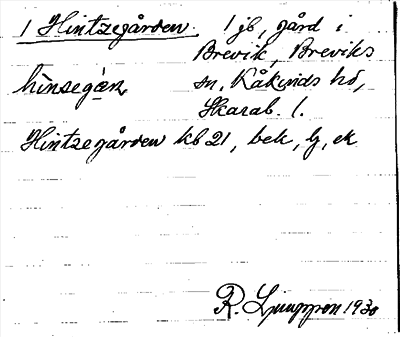 1 Hintzegården. 1 jb, gård i
Brevik, Breviks
hìnsegàn sn, Kåkinds hd,
Skarab. l.
Hintzegården kb 21, bek, lj, ek
R. Ljunggren 1930